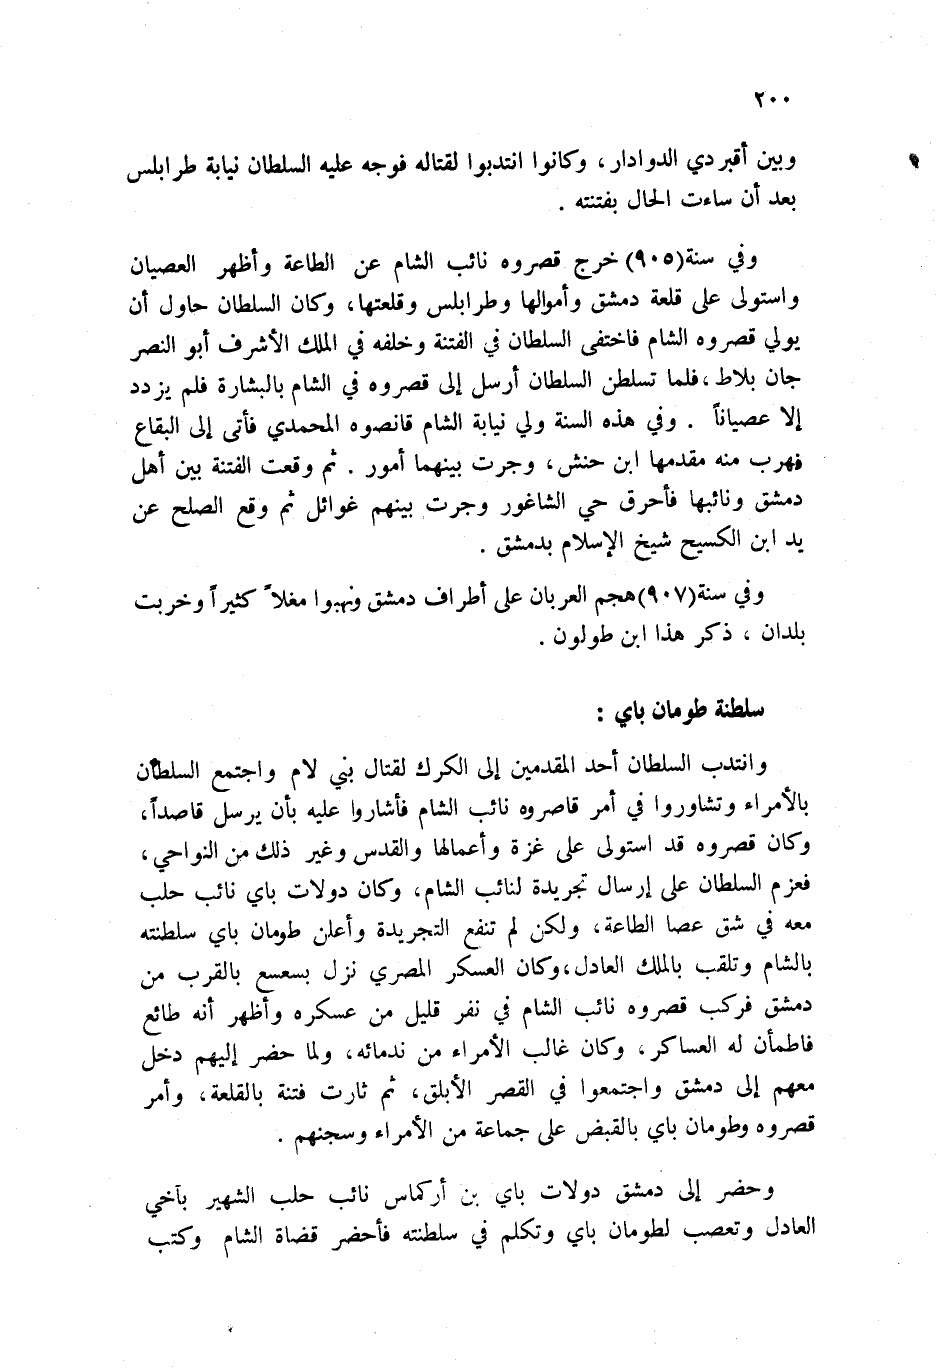 ٢٠٠
وبين أقبردي الدوادار، وكانوا انتدبوا لقتاله فوجه عليه السلطان نيابة طرابلس
بعد أن ساءت الحال بفتنته .
وفي سنة (٩٠٥) خرج قصروه نائب الشام عن الطاعة وأظهر العصيان
واستولى على قلعة دمشق وأموالها وطرابلس وقلعتها، وكان السلطان حاول أن
يولي قصروه الشام فاختفى السلطان في الفتنة وخلفه في الملك الأشرف أبو النصر
جان بلاط ، فلما تسلطن السلطان أرسل إلى قصروه في الشام بالبشارة فلم يزدد
إلا عصياناً . وفي هذه السنة ولي نيابة الشام قانصوه المحمدي فأتى إلى البقاع
فهرب منه مقدمها ابن حنش، وجرت بينهما أمور . ثم وقعت الفتنة بين أهل
دمشق ونائبها فأحرق حي الشاغور وجرت بينهم غوائل ثم وقع الصلح عن
يد ابن الكسيح شيخ الإسلام بدمشق .
وفي سنة (٩٠٧) هجم العربان على أطراف دمشق ونهبوا مغلاً كثيراً وخربت
بلدان ، ذكر هذا ابن طولون .
سلطنة طومان باي :
وانتدب السلطان أحد المقدمين إلى الكرك لقتال بني لام واجتمع السلطان
بالأمراء وتشاوروا في أمر قاصروه نائب الشام فأشاروا عليه بأن يرسل قاصداً،
وكان قصروه قد استولى على غزة وأعمالها والقدس وغير ذلك من النواحي،
فعزم السلطان على إرسال تجريدة لنائب الشام، وكان دولات باي نائب حلب
معه في شق عصا الطاعة، ولكن لم تنفع التجريدة وأعلن طومان باي سلطنته
بالشام وتلقب بالملك العادل، وكان العسكر المصري نزل بسعسع بالقرب من
دمشق فركب قصروه نائب الشام في نفر قليل من عسكره وأظهر أنه طائع
فاطمأن له العساكر، وكان غالب الأمراء من ندمائه، ولما حضر إليهم دخل
معهم إلى دمشق واجتمعوا في القصر الأبلق، ثم ثارت فتنة بالقلعة، وأمر
قصروه وطومان باي بالقبض على جماعة من الأمراء وسجنهم .
وحضر إلى دمشق دولات باي بن أركماس نائب حلب الشهير بآخي
العادل وتعصب لطومان باي وتكلم في سلطنته فأحضر قضاة الشام وكتب